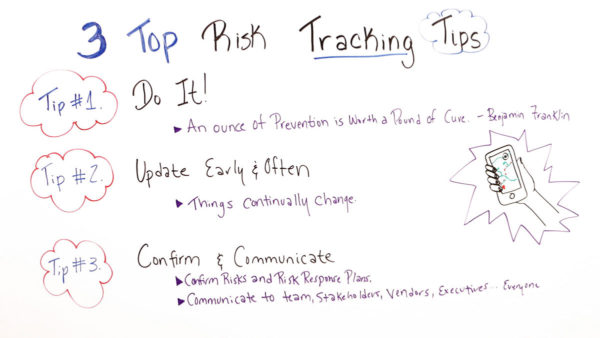 3 Top Risk Tracking Tips
Tip #1. Do It!
▸ An ounce of Prevention is Worth a Pound of Cure. - Benjamin Franklin
Tip #2. Update Early & Often
▸ Things Continually Change.
Tip #3. Confirm & Communicate
▸ Confirm Risks and Risk Response Plans.
▸ Communicate to team, Stakeholders, Vendors, Executives... Everyone